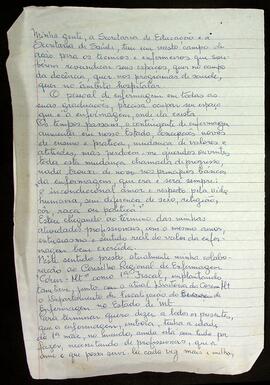 Minha gente, a Secretaria de Educação e a
Secretaria de Saúde, tem um vasto campo de
ação para os técnicos e enfermeiros que sou-
berem reivindicar seus espaços, quer no campo
da docência, quer nos programas de saúde,
quer no âmbito hospitalar.
O pessoal de enfermagem em todas as
suas graduações, precisa ocupar seu espaço
que é a enfermagem, onde ela exista.
Os tempos passam, o contingente de enfermagem
aumentou em nosso Estado, concepções novas
de ensino e prática, mudança de valores e
atitudes, mas
toda esta mudança chamada de progresso,
nada trouxe de novo nos princípios básicos
da enfermagem, que era e será sempre
o incondicional amor e respeito pela vida
humana, sem diferença de sexo, religião,
cor, raça ou política".
Estou chegando ao término das minhas
atividades profissionais, com o mesmo amor,
o sentido real do valor da enfer-
magem bem crescido.
Neste sentido presto, atualmente minha colabo-
ração ao Conselho Regional de Enfermagem
"Coren-Mt" como 1ª Fiscal, implantando
também, junto com a atual Diretoria do Coren-Mt
o Departamento de Fiscalização do Exercício de
Enfermagem no Estado de Mt.
Para terminar quero dizer a todos os presentes,
que a enfermagem, embora, tenha a idade
da 1ª mãe, no mundo, ainda está com tudo por
fazer, necessitando de profissionais, que a
ame e que possa servi-la cada vez mais e melhor,